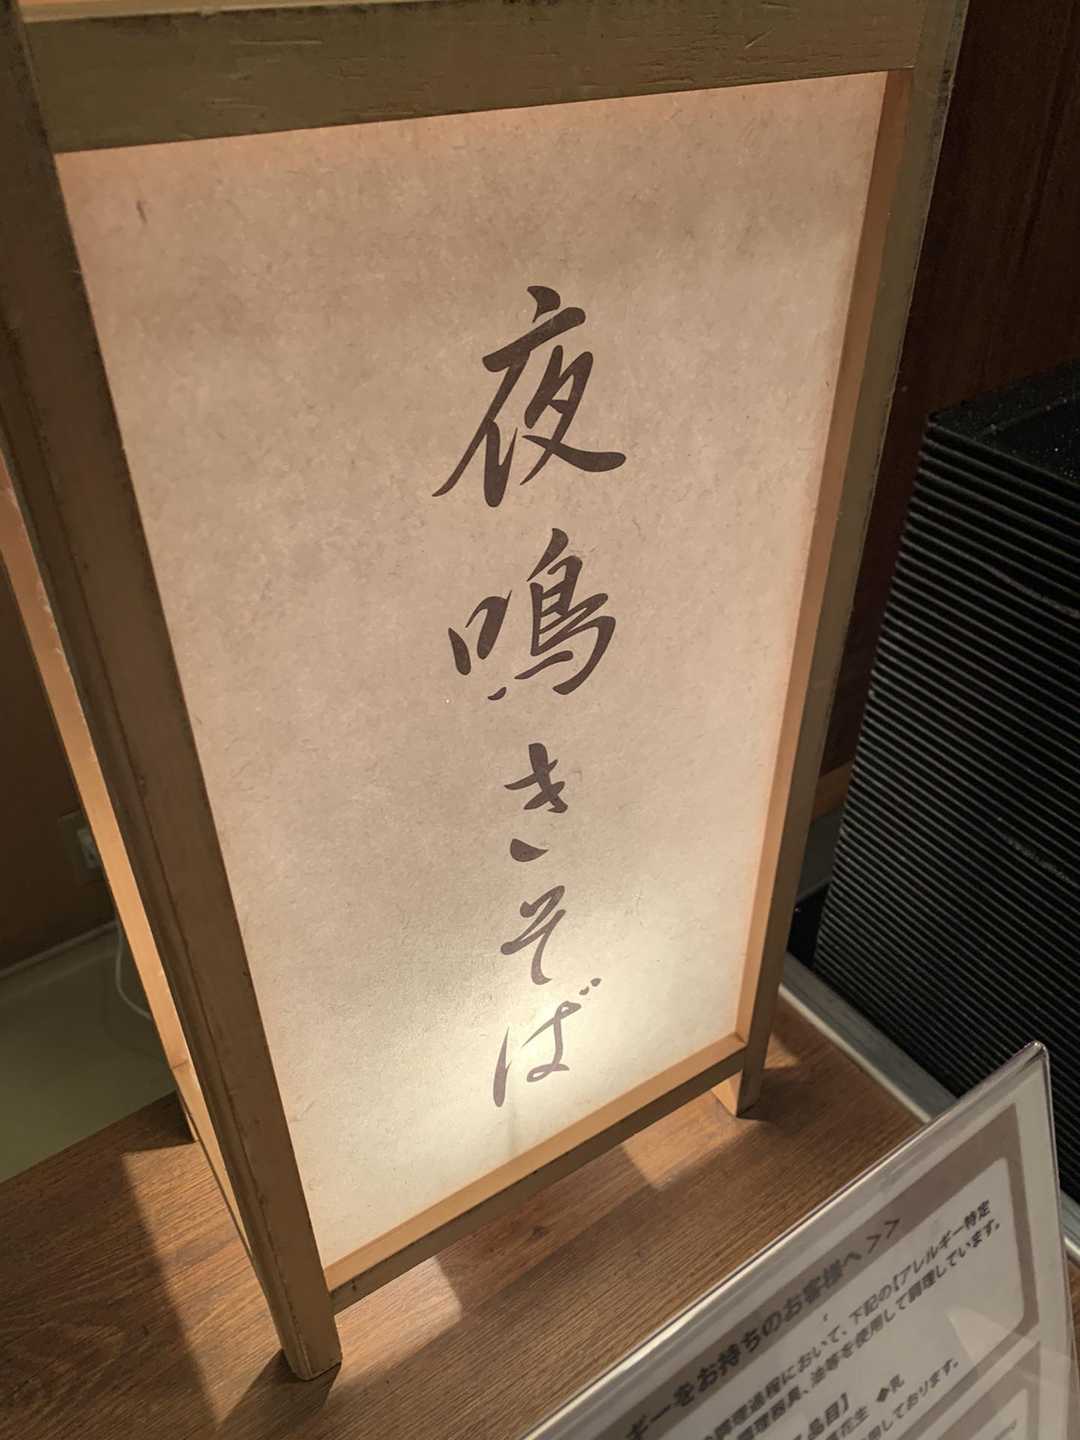 夜鳴きそば
ギーをお持ちのお客様へ＞＞
調理過程において、下記の【アレルギー特定
調理器具、油等を使用して調理しています。
品目】
花生　◆乳
用しております。